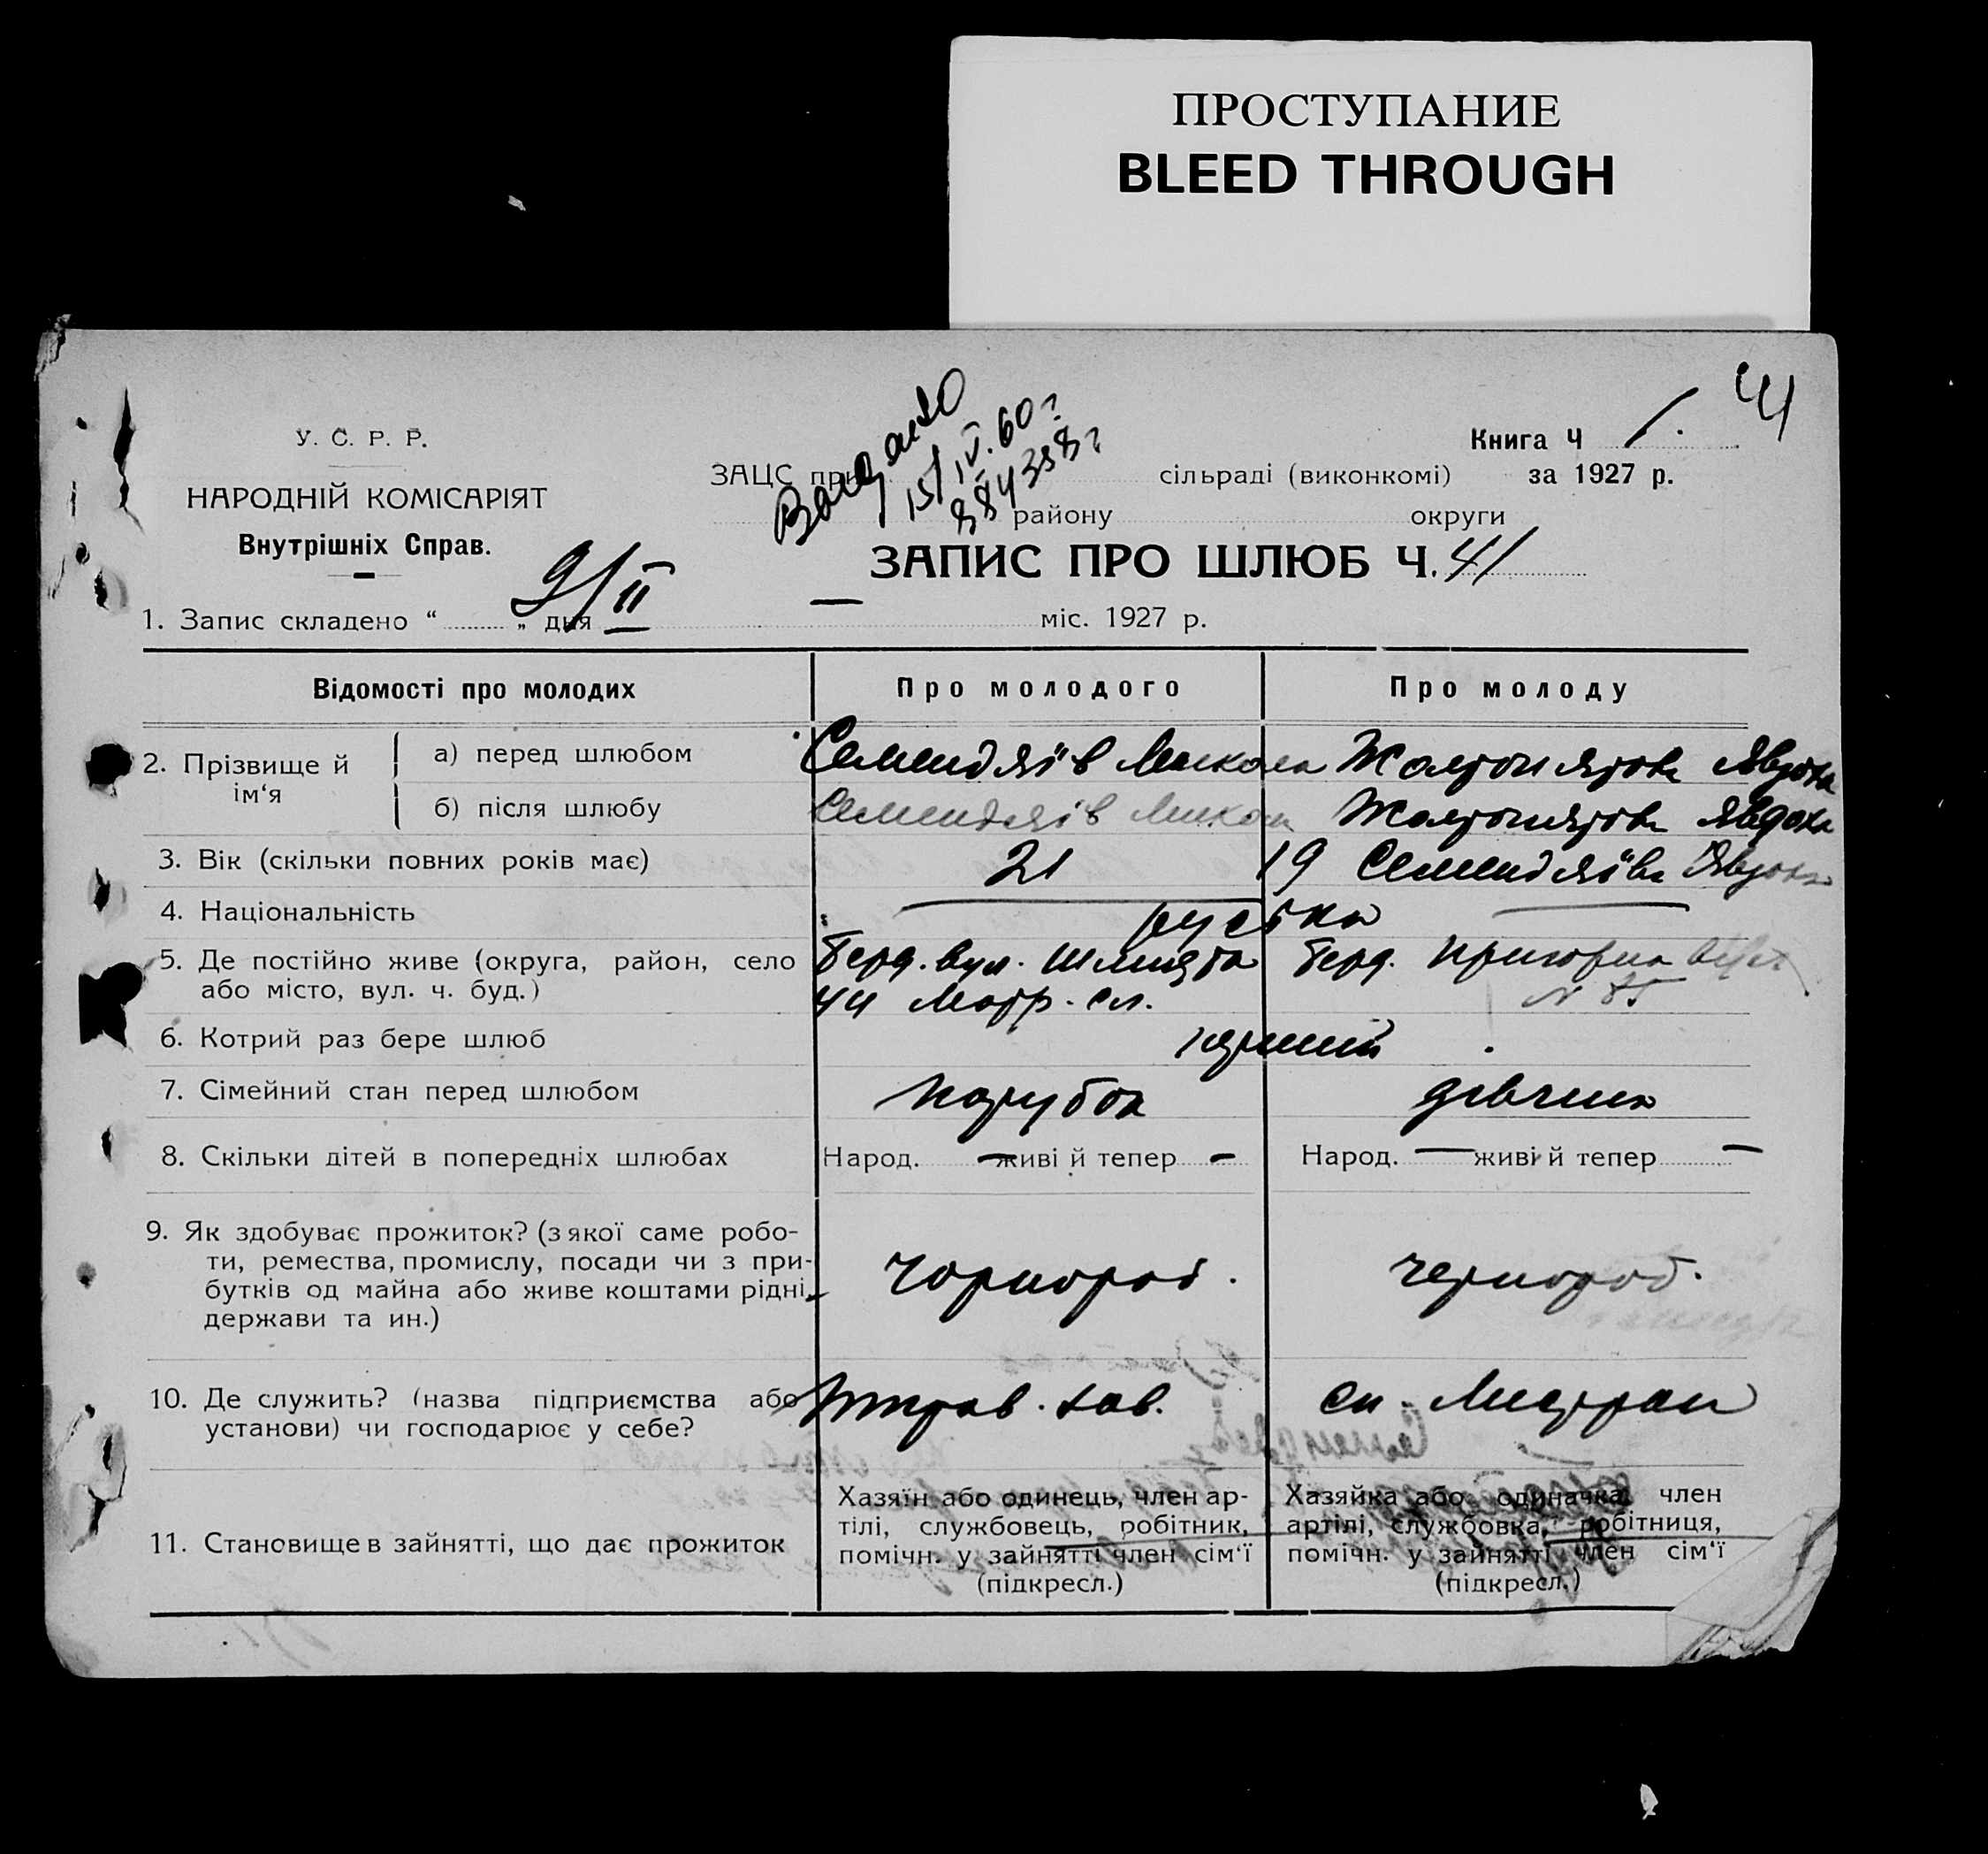 ПРОСТУПАНИЕ
BLEED THROUGH
41
У. С. Р. Р.
НАРОДНІЙ КОМІСАРІЯТ
Внутрішніх Справ.
Книга Ч 1.
ЗАЦС при сільраді (виконкомі) за 1927 р.
району округи
15/IV.60г
ЗАПИС ПРО ШЛЮБ Ч. 41
1. Запис складено “ „ дня 9/II міс. 1927 р.
Відомості про молодих Про молодого Про молоду
2. Прізвище й ім‘я
а) перед шлюбом Семендяїв Микола Явдоха
б) після шлюбу Семендяїв Микола Явдоха
3. Вік (скільки повних років має) 21 19 Семендяїва Явдоха
4. Національність руська
5. Де постійно живе (округа, район, село Берд. вул. Шмидта Берд.
або місто, вул. ч. буд.) 44 сл. N 85
6. Котрий раз бере шлюб перший
7. Сімейний стан перед шлюбом парубок дівчина
8. Скільки дітей в попередніх шлюбах Народ. — живі й тепер — Народ. — живі й тепер —
9. Як здобуває прожиток? (з якої саме робо-
ти, ремества, промислу, посади чи з при-
бутків од майна або живе коштами рідні,
держави та ин.)
чорнороб. чернороб.
10. Де служить? (назва підприємства або
установи) чи господарює у себе?
11. Становище в зайнятті, що дає прожиток
Хазяїн або одинець, член ар-
тілі, службовець, робітник,
помічн. у зайнятті член сім‘ї
(підкресл.)
Хазяйка або одиначка член
артілі, службовка, робітниця,
помічн. у зайнятті член сім‘ї
(підкресл.)